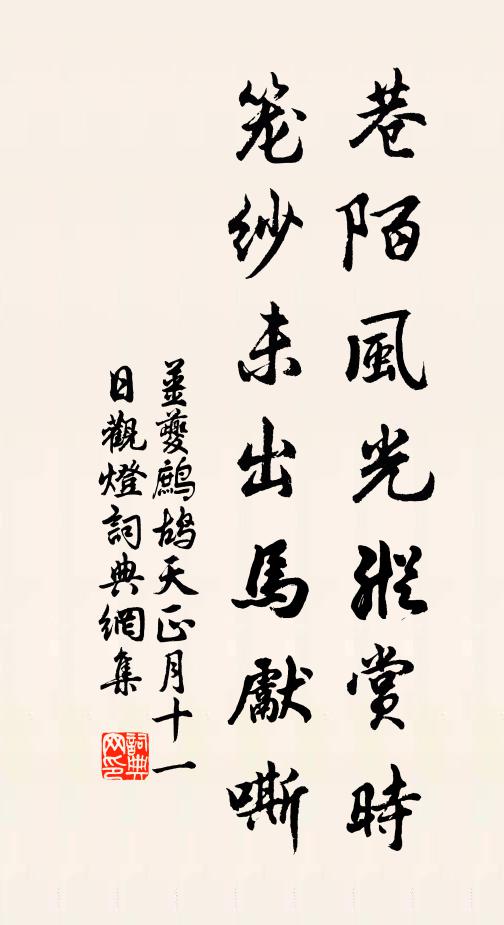 巷陌風光縱賞時
笼紗未出馬獻嘶
姜夔鷓鴣天正月十一
日觀燈詞典網集
詞典网印